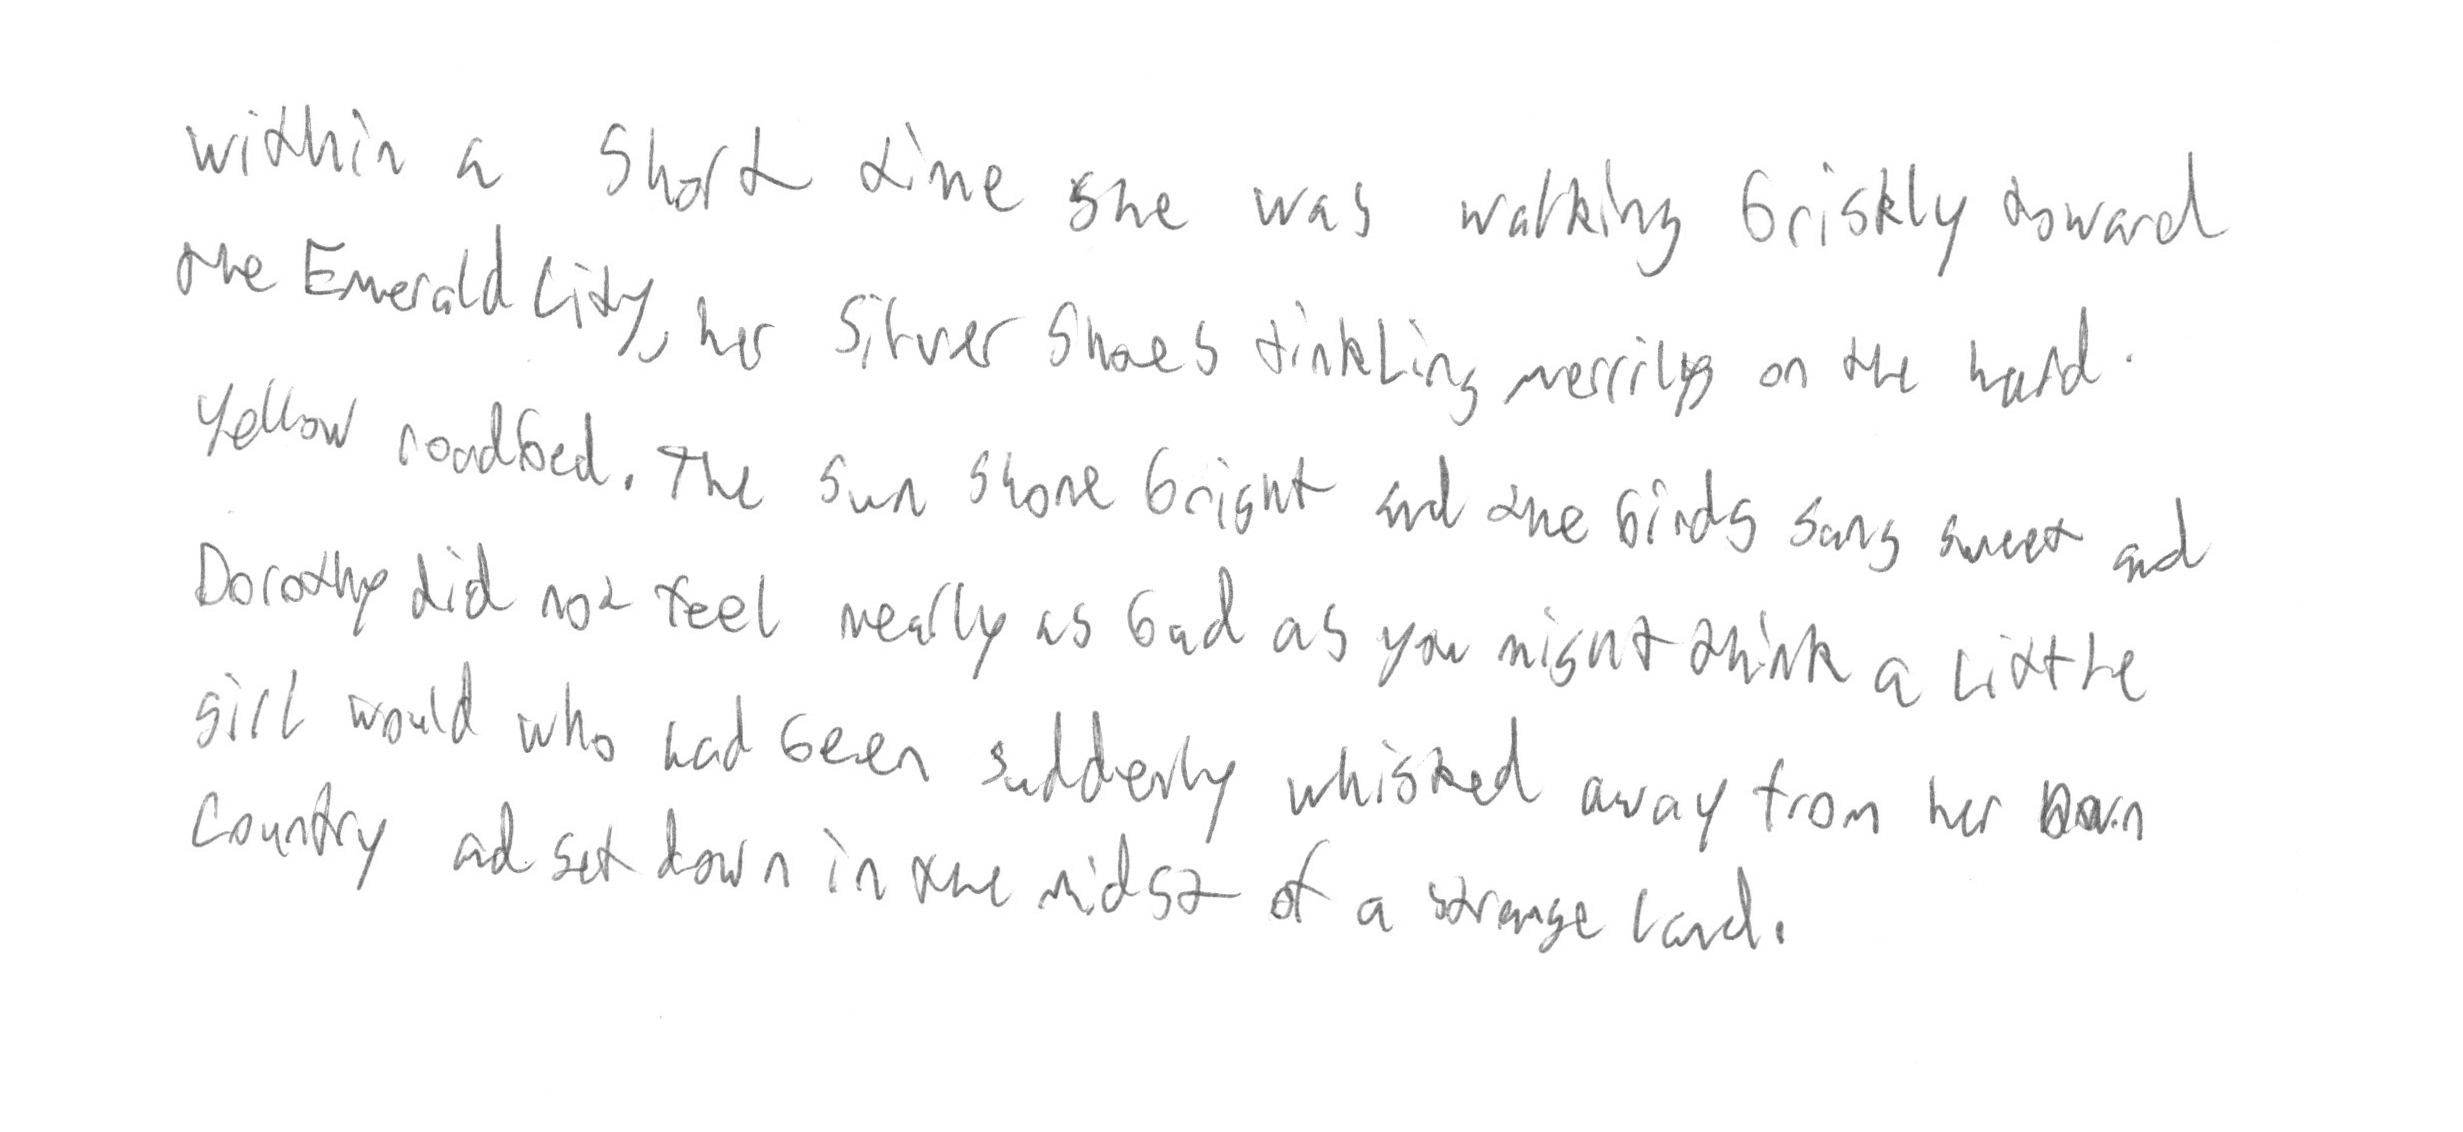 within a short time she was walking briskly toward
the Emerald City, her Silver Shoes tinkling merrily on the hard.
Yellow roadbed. The sun shone bright and the birds sang sweet and
Dorothy did not feel nearly as bad as you might think a little
girl would who had been suddenly whisked away from her own
Country ad set down in the midst of a strange land.